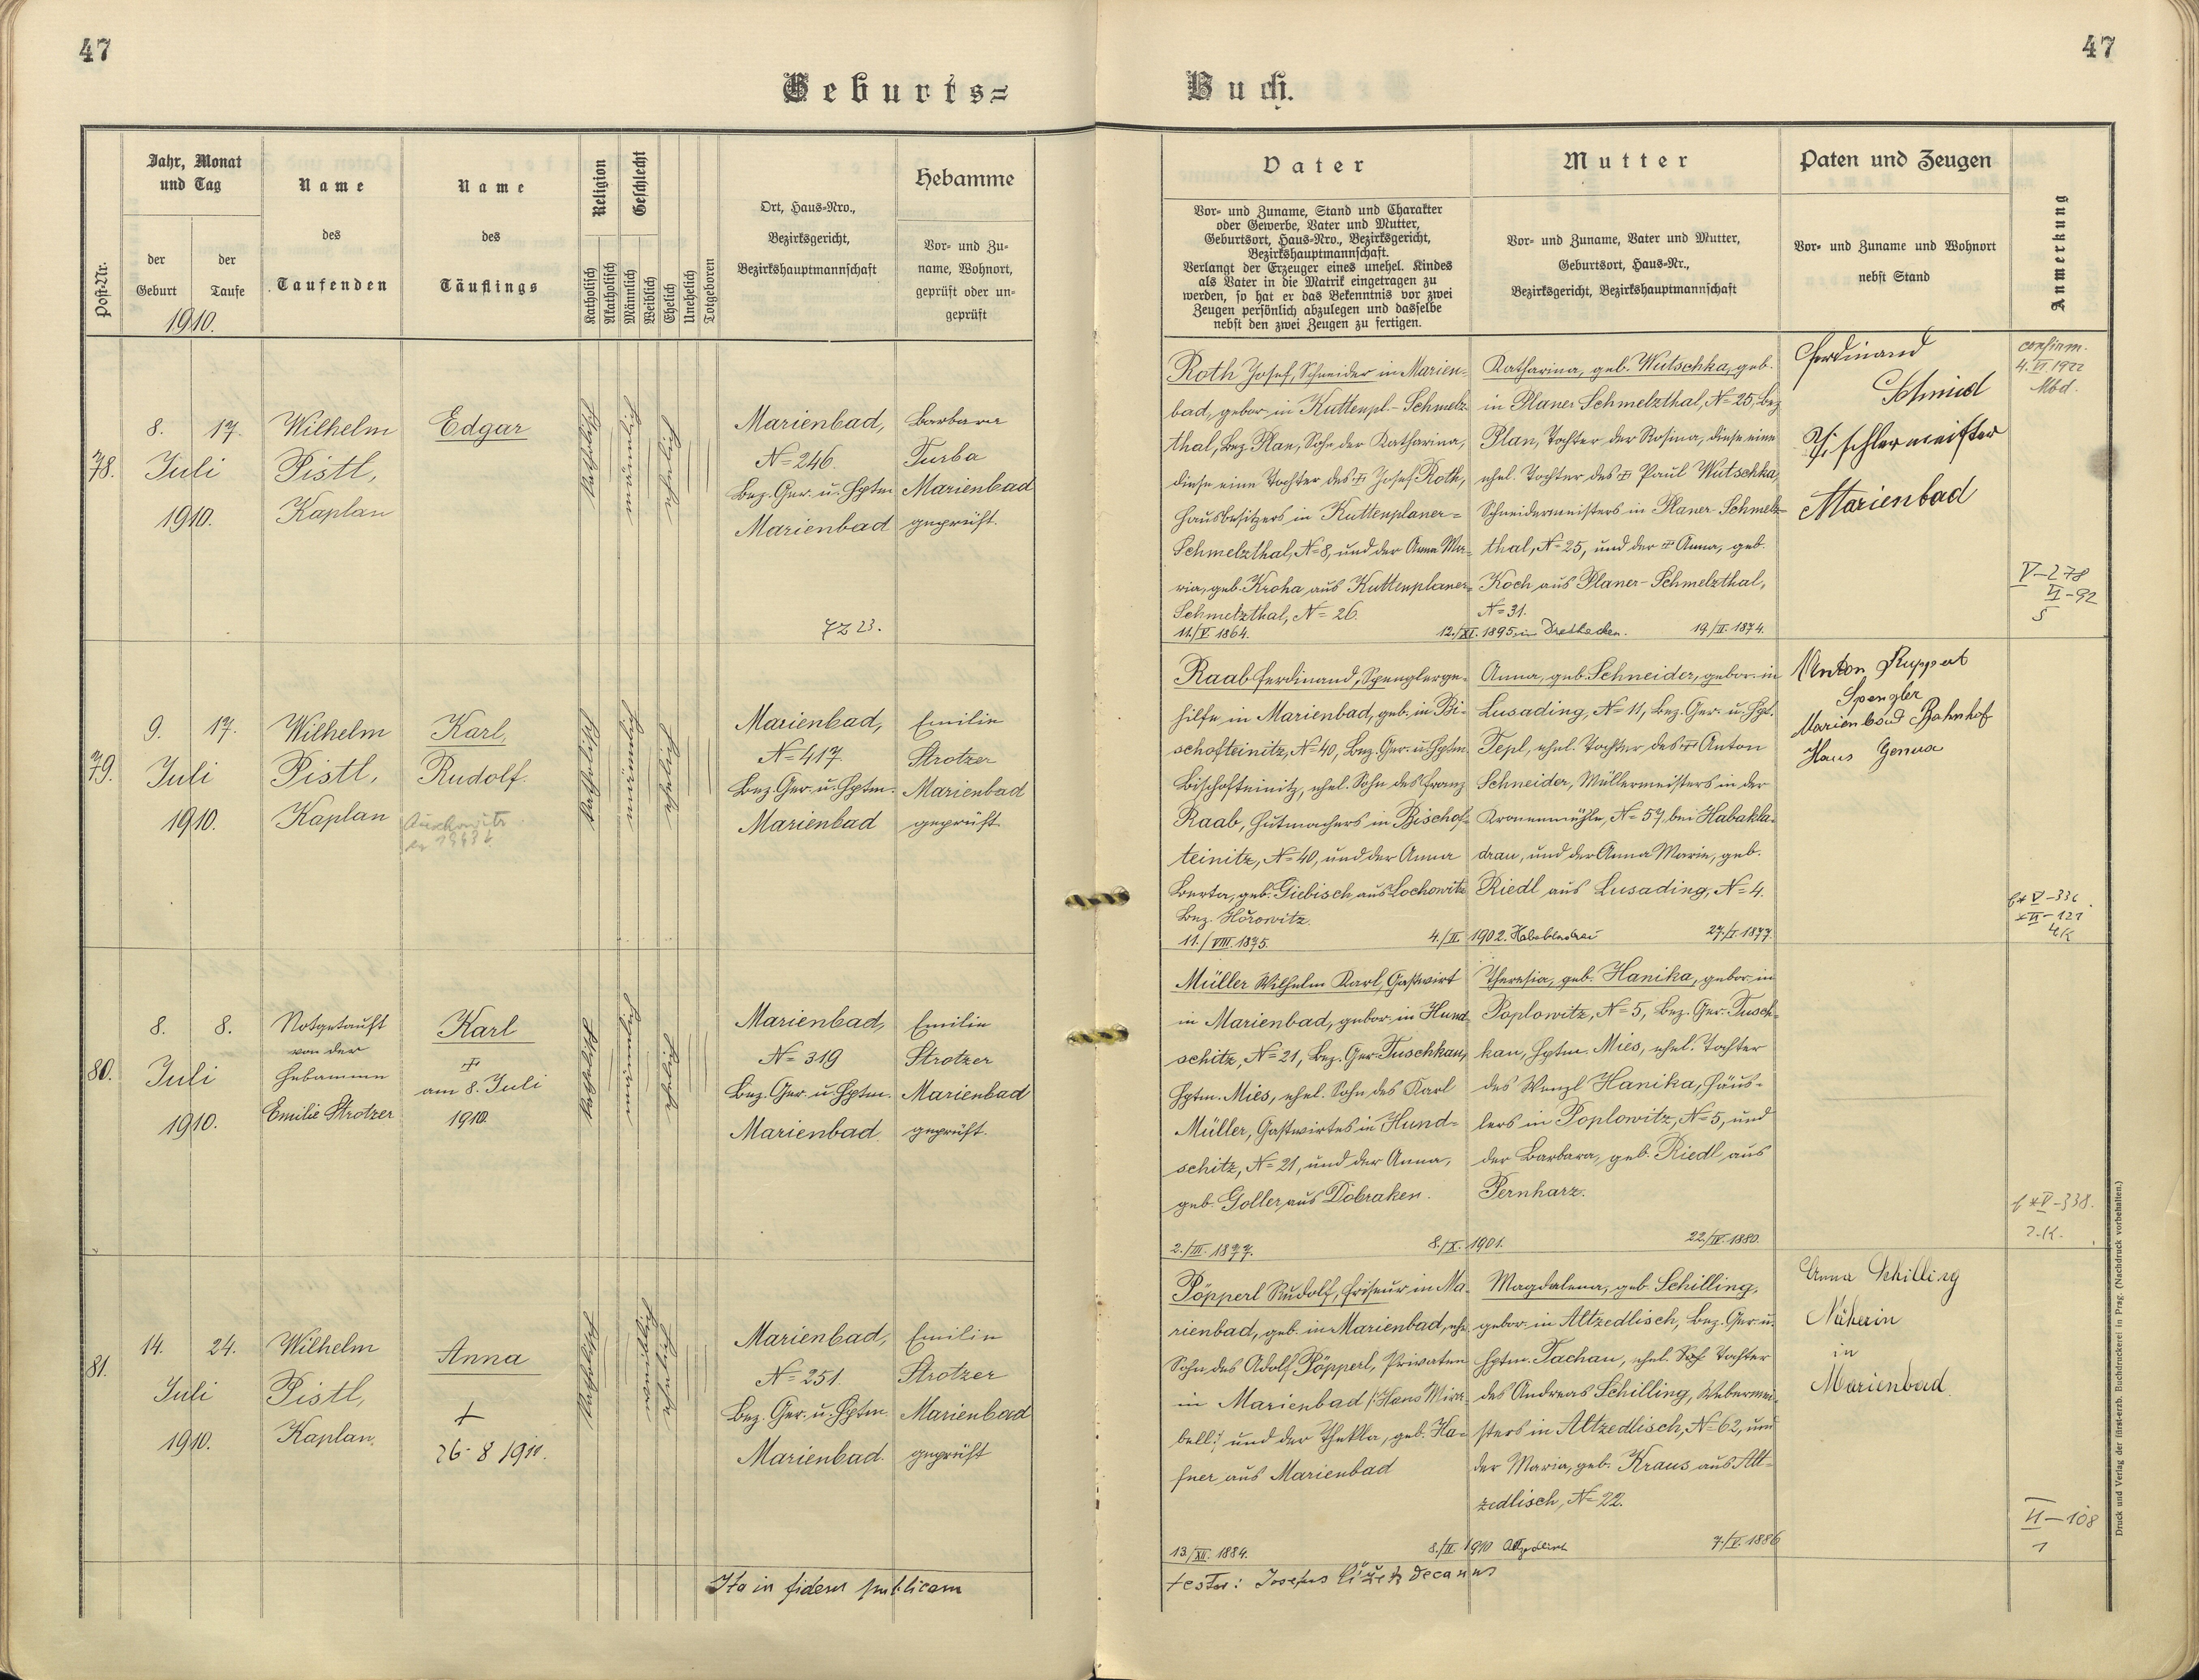 47
47
Geburts=
Buch.
Jahr, Monat
und Tag
der
Geburt
der
Taufe
1910.
Post-Nr.
Name
des
Taufenden
Name
des
Täuflings
Religion
Katholisch
Akatholisch
Geschlecht
Männlich
Weiblich
Ehelich
Unehelich
Totgeboren
Ort, Haus-Nro.,
Bezirksgericht,
Bezirkshauptmannschaft
Hebamme
Vor- und Zu-
name, Wohnort,
geprüft oder un-
geprüft
Vater
Vor- und Zuname, Stand und Charakter
oder Gewerbe, Vater und Mutter,
Geburtsort, Haus-Nro., Bezirksgericht,
Bezirkshauptmannschaft.
Verlangt der Erzeuger eines unehel. Kindes
als Vater in die Matrik eingetragen zu
werden, so hat er das Bekenntnis vor zwei
Zeugen persönlich abzulegen und dasselbe
nebst den zwei Zeugen zu fertigen.
Mutter
Vor- und Zuname, Vater und Mutter,
Geburtsort, Haus-Nr.,
Bezirksgericht, Bezirkshauptmannschaft
Paten und Zeugen
Vor- und Zuname und Wohnort
nebst Stand
Anmerkung
78.
8. 17.
Juli
1910.
Wilhelm
Pistl,
Kaplan
Edgar
katholisch
männlich
ehelich
Marienbad,
N= 246.
Bez. Ger. u. Hptm
Marienbad
7z 23.
Barbara
Turba
Marienbad
geprüft.
Roth Josef, Schneider in Marien-
bad, gebor. in Kuttenpl.- Schmelz-
thal, Bez. Plan, Sohn der Katharina,
diese eine Tochter des † Josef Roth,
Hausbesitzers in Kuttenplaner=
Schmelzthal, N= 8, und der Anna Ma-
ria, geb. Kroha aus Kuttenplaner-
Schmelzthal, N= 26.
11./V. 1864.
12./XI. 1895 in
Katharina, geb. Wutschka, geb.
in Planer Schmelzthal, N= 25, Bez.
Plan, Tochter der Rosina, diese eine
ehel. Tochter des † Paul Wutschka,
Schneidermeisters in Planer-Schmelz-
thal, N= 25, und der † Anna, geb.
Koch aus Planer-Schmelzthal,
N= 31.
19./II. 1874.
Ferdinand
Schmied
Tischlermeister
Marienbad
confirm.
4. VI. 1922
Mbd.
V-278
VI-92
5
79.
9. 17.
Juli
1910.
Wilhelm
Pistl,
Kaplan
Karl,
Rudolf
katholisch
männlich
ehelich
Marienbad,
N= 417.
Bez. Ger. u. Hptm.
Marienbad
Emilie
Strotzer
Marienbad
geprüft
Raab Ferdinand, Spenglerge-
hilfe in Marienbad, geb. in Bi-
schofteinitz, N= 40, Bez. Ger. u. Hptm.
Bischofteinitz, ehel. Sohn des Franz
Raab, Hutmachers in Bischof-
teinitz, N= 40, und der Anna
Berta, geb. Giebisch aus Lochowitz
Bez. Hořowitz.
11./VIII. 1875.
4./II. 1902. Habakladrau
Anna, geb. Schneider, gebor. in
Lusading, N= 11, Bez. Ger. u. Hpt.
Tepl, ehel. Tochter des † Anton
Schneider, Müllermeisters in der
Kronenmühle, N= 57, bei Habakla-
drau, und der Anna Marie, geb.
Riedl aus Lusading, N= 4.
27./I. 1877.
Anton Ruppert
Spengler
Marienbad Bahnhof
Haus Genua
V-336
VI-121
4K
80.
8. 8.
Juli
1910.
Notgetauft
von der
Hebamme
Emilie Strotzer
Karl
†
am 8. Juli
1910.
katholisch
männlich
ehelich
Marienbad,
N= 319
Bez. Ger. u. Hptm.
Marienbad.
Emilie
Strotzer
Marienbad
geprüft.
Müller Wilhelm Karl, Gastwirt
in Marienbad, gebor. in Hund-
schitz, N= 21, Bez. Ger. Tuschkau,
Hptm. Mies, ehel. Sohn des Karl
Müller, Gastwirtes in Hund-
schitz, N= 21, und der Anna,
geb. Goller aus Dobraken.
2./III. 1877.
8./X. 1901.
Theresia, geb. Hanika, gebor. in
Poplowitz, N= 5, Bez. Ger. Tusch-
kau, Hptm. Mies, ehel. Tochter
des Wenzl Hanika, Häus-
lers in Poplowitz, N= 5, und
der Barbara, geb. Riedl aus
Pernharz.
22./IV. 1880.
V-338.
2.K.
81.
14. 24.
Juli
1910.
Wilhelm
Pistl,
Kaplan.
Anna
†
26-8 1911.
katholisch
weiblich
ehelich
Marienbad,
N= 251.
Bez. Ger. u. Hptm.
Marienbad.
Emilie
Strotzer
Marienbad
geprüft
Pöpperl Rudolf, Friseur in Ma-
rienbad, geb. in Marienbad, ehe.
Sohn des Adolf Pöpperl, Privaten
in Marienbad /:Haus Mira-
bell:/ und der Thekla, geb. Ha-
fner aus Marienbad
13./XII. 1884.
8./II. 1910
Magdalena, geb. Schilling,
gebor. in Altzedlisch, Bez. Ger. u.
Hptm. Tachau, ehel. Tochter
des Andreas Schilling, Webermei-
sters in Altzedlisch, N= 62, und
der Maria, geb. Kraus aus Alt-
zedlisch, N= 22.
7./V. 1886
Anna Schilling
Näherin
in
Marienbad.
VI-108
1
Ita in fidem publicam
testor: Josefus decanus
Druck und Verlag der fürst-erzb. Buchdruckerei in Prag. (Nachdruck vorbehalten.)